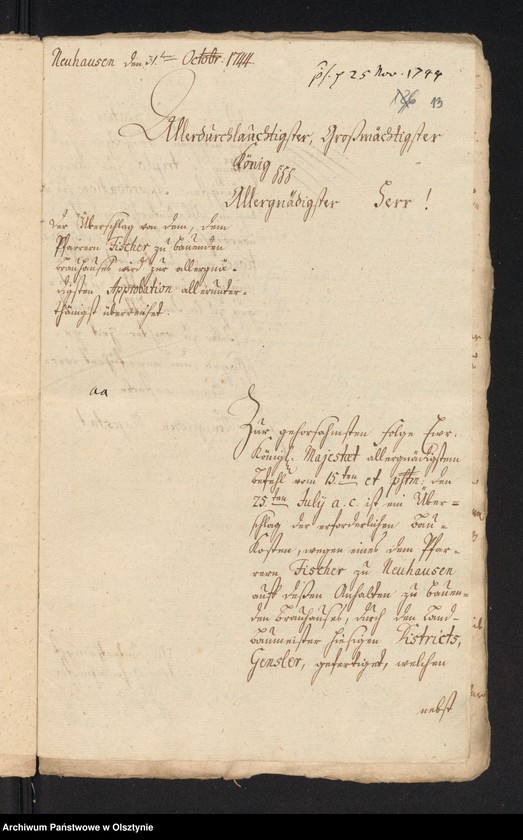 Neuhausen den 31.ten Octobr. 1744.
ps. 25 Nov. 1744
186 13
Allerdurchlauchtigster, Großmächtigster
König
Allergnädigster Herr!
Der Überschlag von dem, dem
Pfarrern Fischer zu bauenden
Brauhauses wird zur allergnä-
digsten Approbation allerunter-
thänigst überreichet.
aa
Zur gehorsahmsten Folge Ewr.
Königl. Majestaet allergnädigstem
Befehl vom 15.ten et pstm: den
25.ten July a. c. ist ein Über-
schlag der erforderlichen Bau-
Kosten, wegen eines dem Pfar-
rern Fischer zu Neuhausen
auff deßen Anhalten zu bauen-
den Brauhauses, durch den Land-
baumeister hiesigen Districts,
Gensler, gefertiget, welchen
nebst
Archiwum Państwowe w Olsztynie